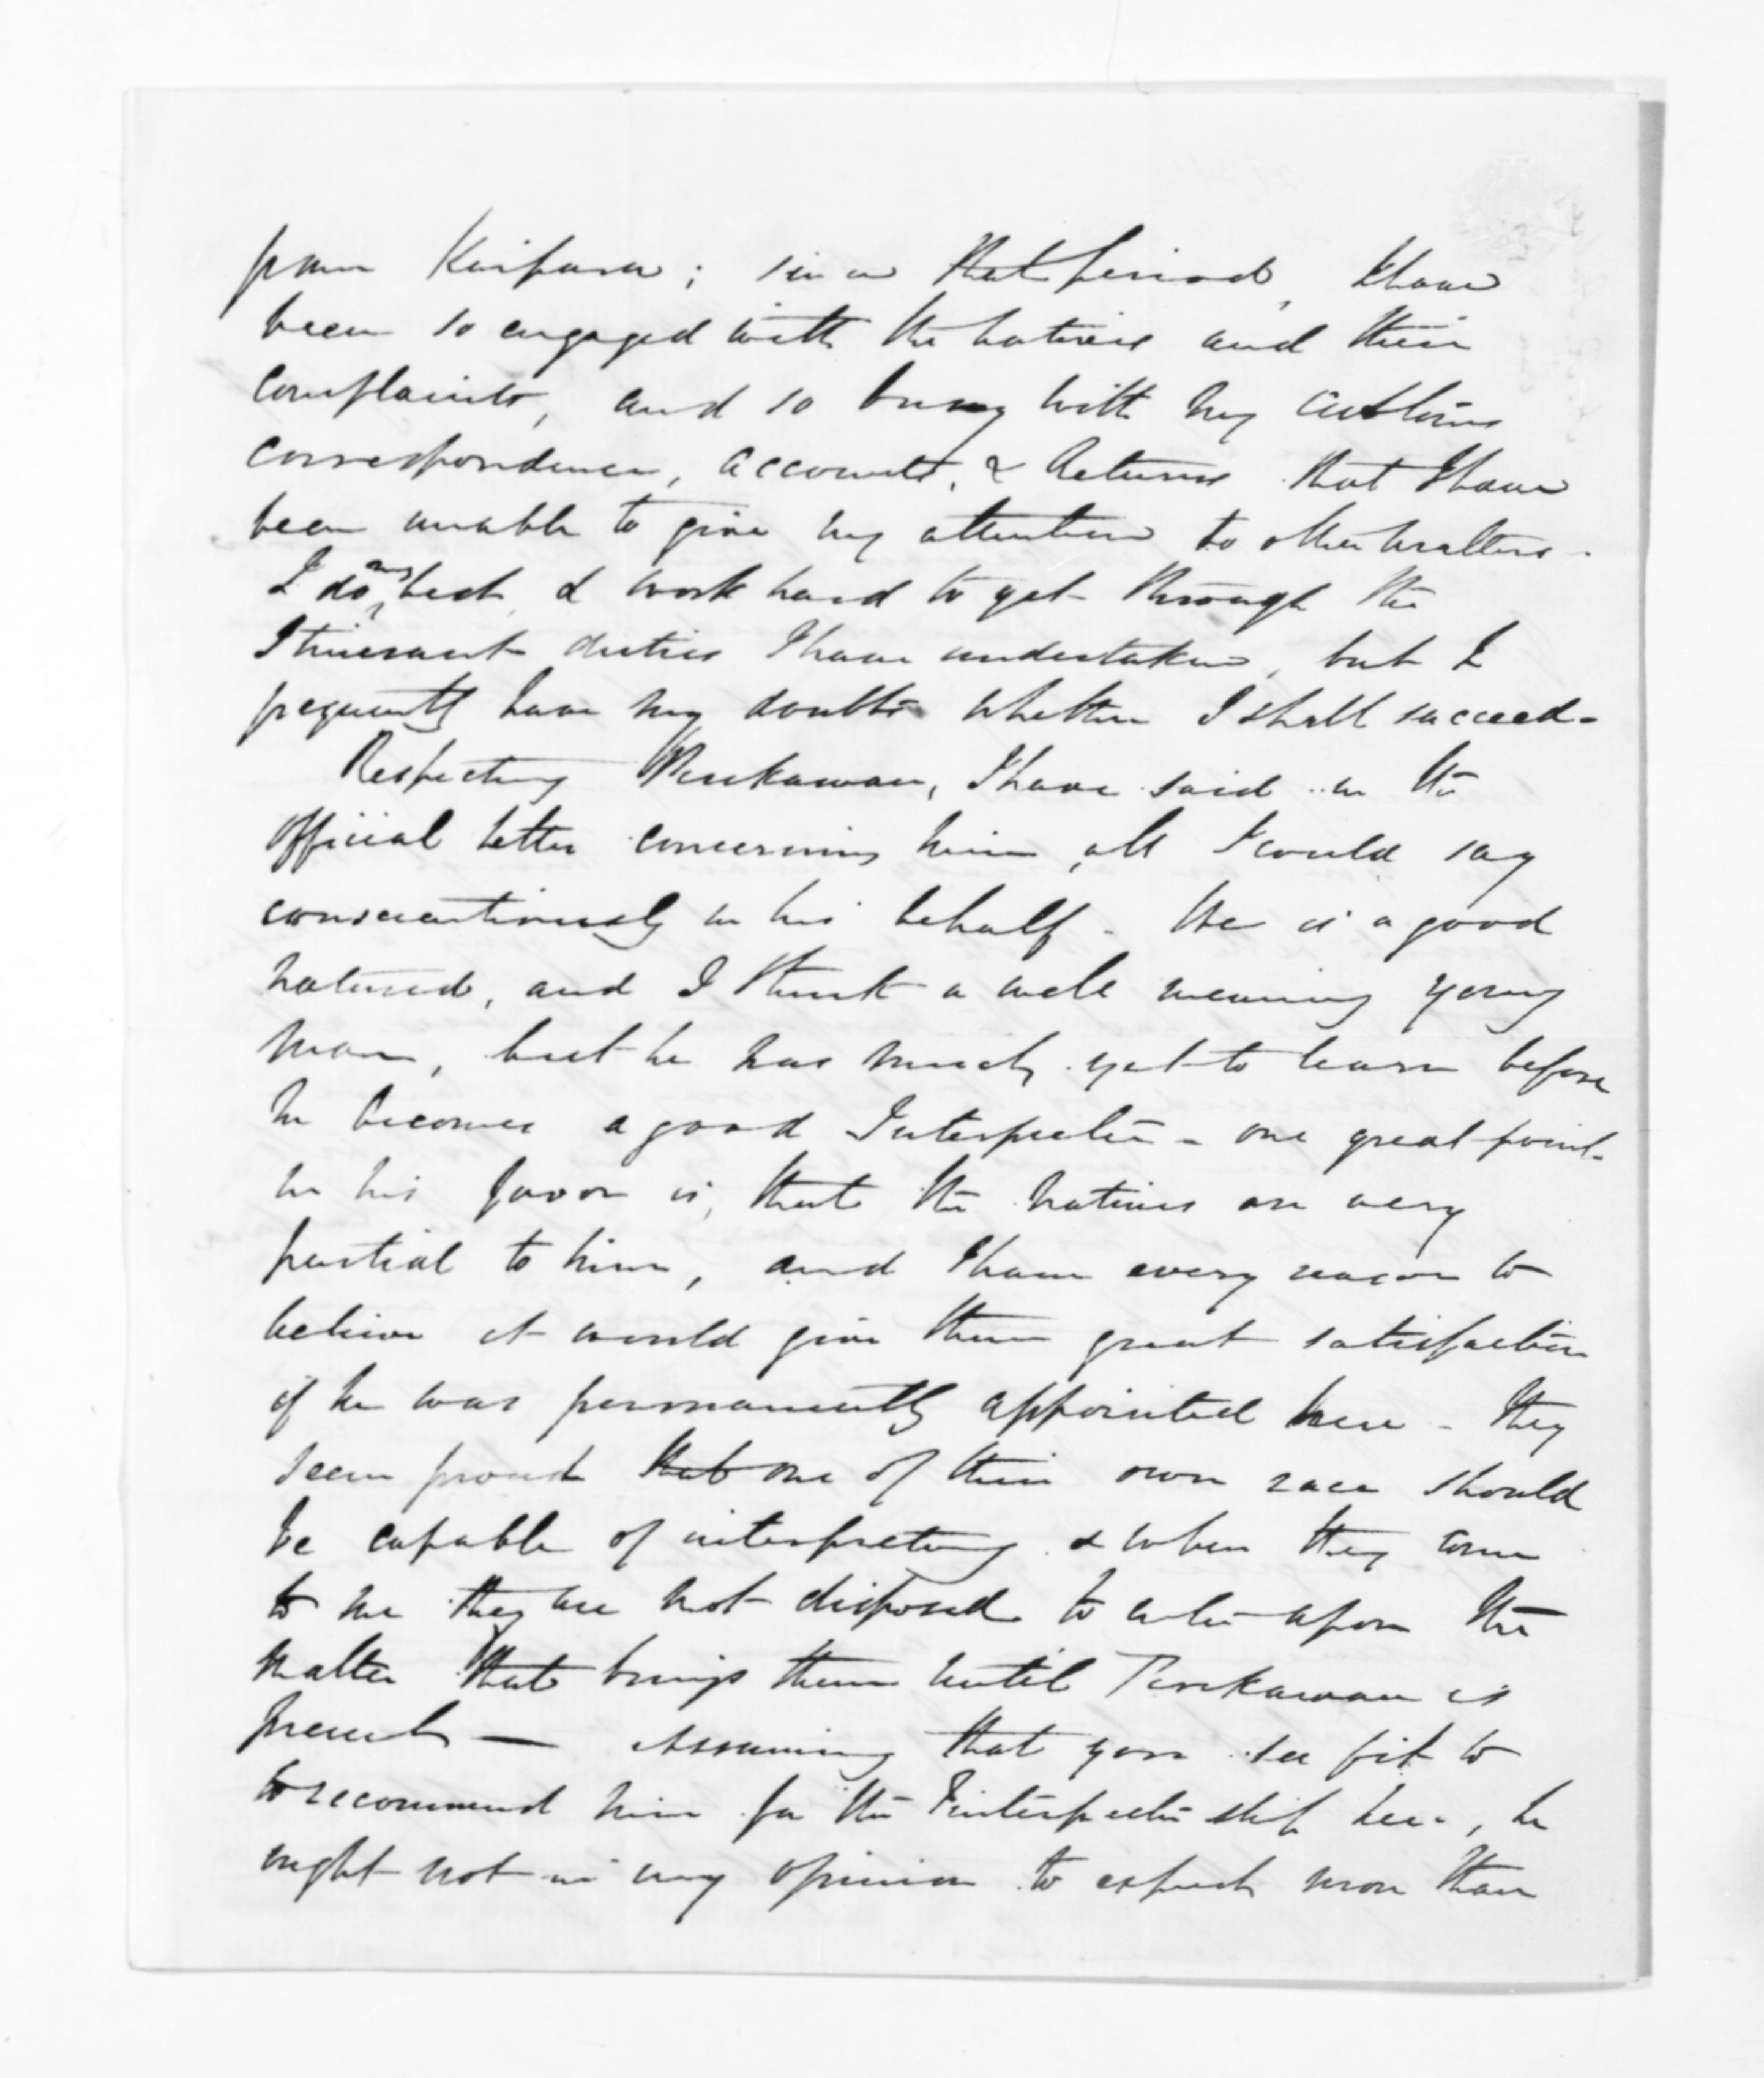 from Kaipara; since that period, I have
been so engaged with the natives and their
complaints, and so busy with my Customs
correspondence, accounts, & Returns that I have
been unable to give my attention to other matters -
I do my best & work hard to get through the
Itinerant duties I have undertaken, but I
frequently have my doubts whether I shall succeed -
Respecting I have said in the
official letter concerning him, all I could say
conscientiously in his behalf - He is a good
natured, and I think a well meaning young
man, but he has much yet to learn before
he becomes a good Interpreter - one great point
in his favor is, that the natives are very
partial to him, and I have every reason to
believe it would give them great satisfaction
if he was permanently appointed here - they
seem proud that one of their own race should
be capable of interpreting & when they come
to me they are not disposed to enter upon the
matter that brings them until is
present — Assuming that you see fit to
to recommend him for the Interpreter ship here, he
ought not in my opinion to expect more than